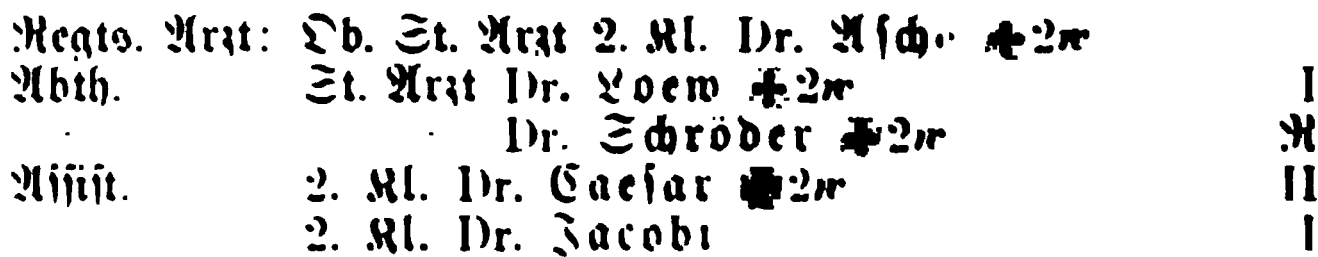 Regts. Arzt: Ob. St. Arzt 2. Kl. Dr. Asche ✠2w
Abth. St. Arzt Dr. Loew ✠2w I
Dr. Schröder ✠2w R
Assist. 2. Kl. Dr. Caesar ✠2w II
2. Kl. Dr. Jacobi I